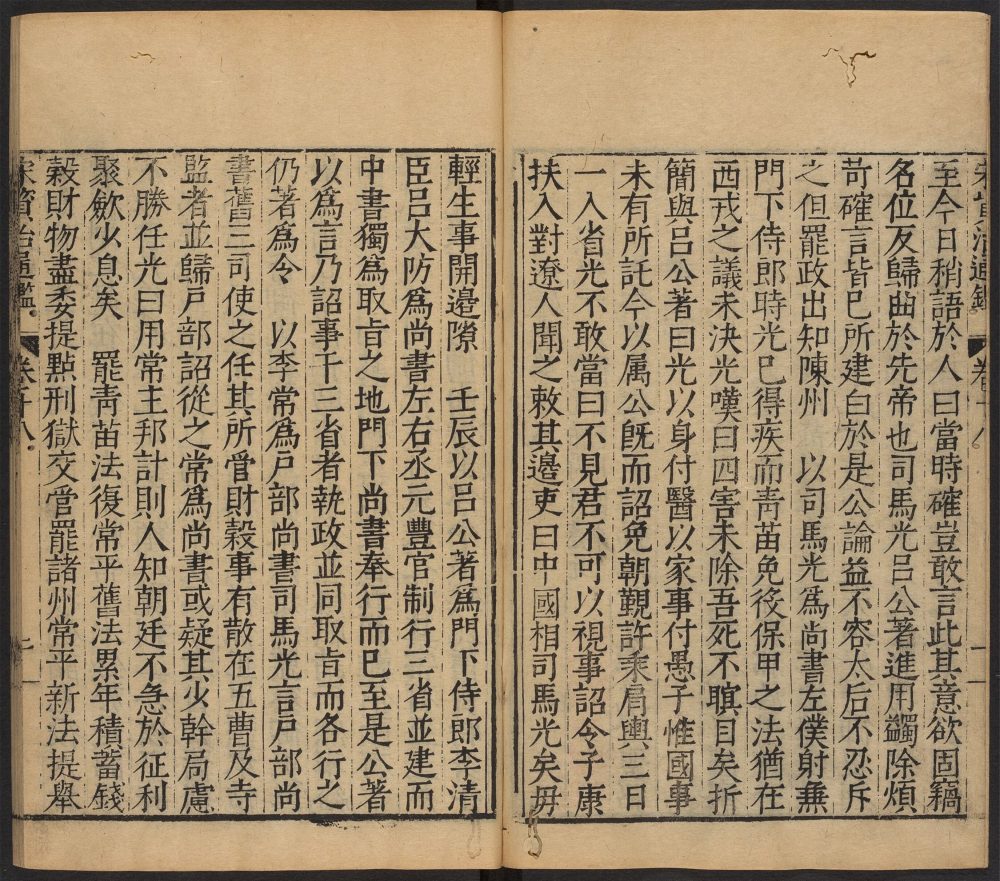 宋資治通鑑 卷十八
至今日稍語於人曰當時確豈敢言此其意欲固竊
名位反歸曲於先帝也司馬光呂公著進用蠲除煩
苛確言皆已所建白於是公論益不容太后不忍斥
之但罷政出知陳州 以司馬光爲尚書左僕射兼
門下侍郎時光已得疾而靑苗免役保甲之法猶在
西戎之議未決光嘆曰四害未除吾死不瞑目矣折
簡與呂公著曰光以身付醫以家事付愚子惟國事
未有所託今以属公旣而詔免朝覲許乘肩輿三日
一入省光不敢當曰不見君不可以視事詔令子康
扶入對遼人聞之敕其邊吏曰中國相司馬光矣毋
輕生事開邊隙 壬辰以呂公著爲門下侍郎李清
臣呂大防爲尚書左右丞元豐官制行三省並建而
中書獨爲取旨之地門下尚書奉行而已至是公著
以爲言乃詔事干三省者執政並同取旨而各行之
仍著爲令 以李常爲戶部尚書司馬光言戶部尚
書舊三司使之任其所管財穀事有散在五曹及寺
監者並歸戶部詔從之常爲尚書或疑其少幹局慮
不勝任光曰用常主邦計則人知朝廷不急於征利
聚斂少息矣 罷靑苗法復常平舊法累年積蓄錢
穀財物盡委提點刑獄交管罷諸州常平新法提舉
宋資治通鑑 卷十八